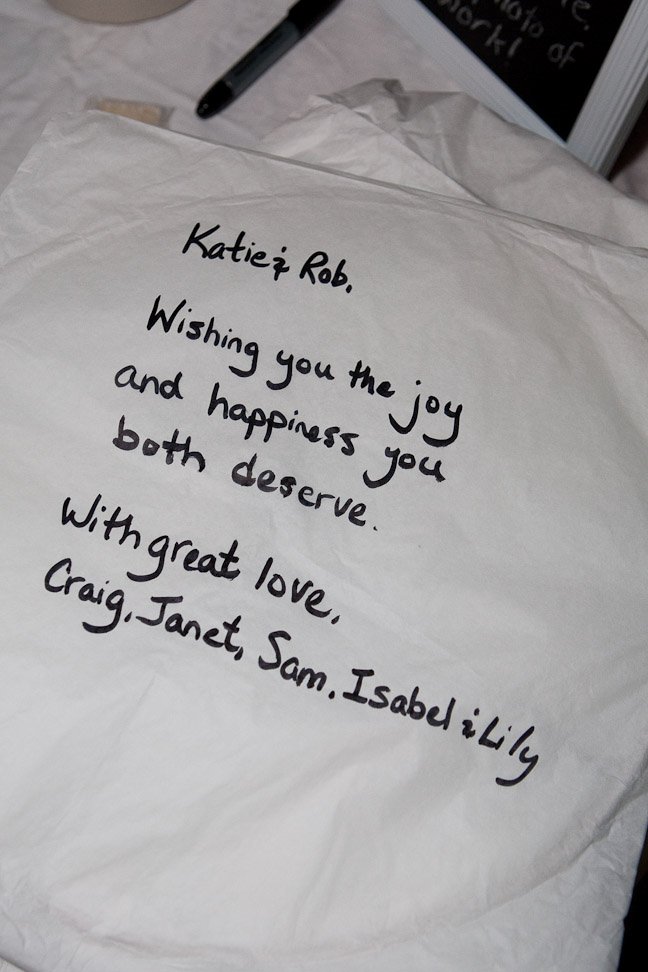 photo of
work!
Katie & Rob,
Wishing you the joy
and happiness you
both deserve.
With great love,
Craig, Janet, Sam, Isabel & Lily